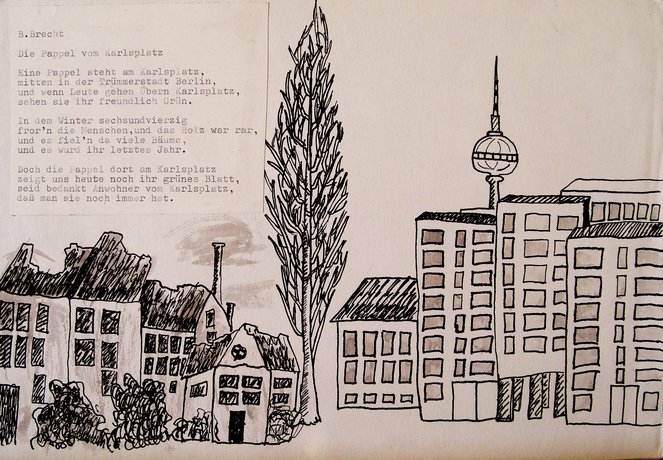 B.Brecht
Die Pappel vom Karlsplatz
Eine Pappel steht am Karlsplatz,
mitten in der Trümmerstadt Berlin,
und wenn Leute gehen Übern Karlsplatz,
sehen sie ihr freundlich Grün.
In dem Winter sechsundvierzig
fror'n die Menschen,und das Holz war rar,
und es fiel'n da viele Bäume,
und es wurd ihr letztes Jahr.
Doch die Pappel dort am Karlsplatz
zeigt uns heute noch ihr grünes Blatt,
seid bedankt Anwohner vom Karlsplatz,
daß man sie noch immer hat.